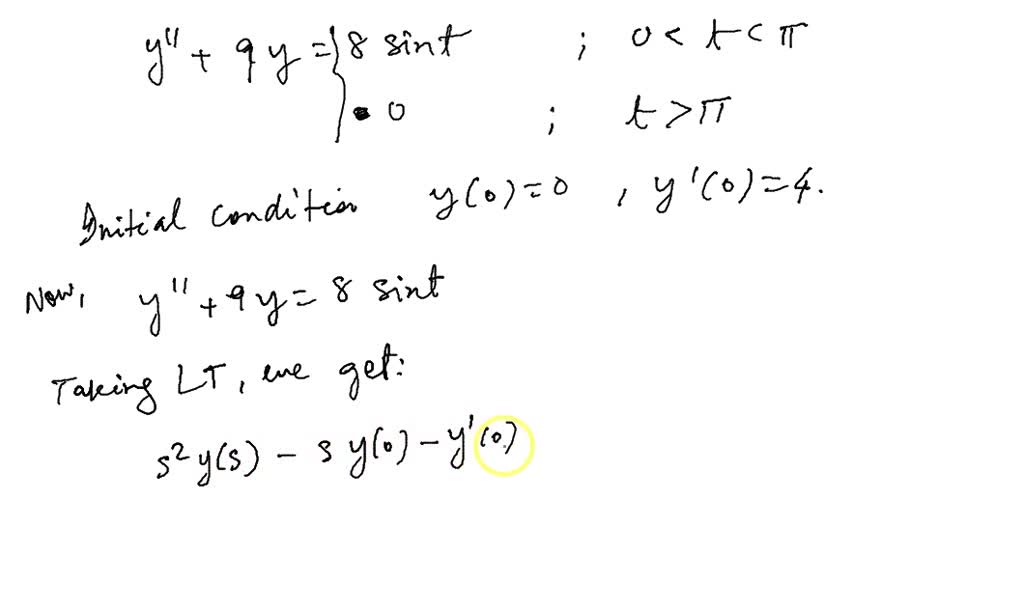 y'' + 9y = { 8 sint ; 0 < t < π
0 ; t > π
Initial condition y(0) = 0 , y'(0) = 4.
Now, y'' + 9y = 8 sint
Taking LT, we get:
s² y(s) - s y(0) - y'(0)